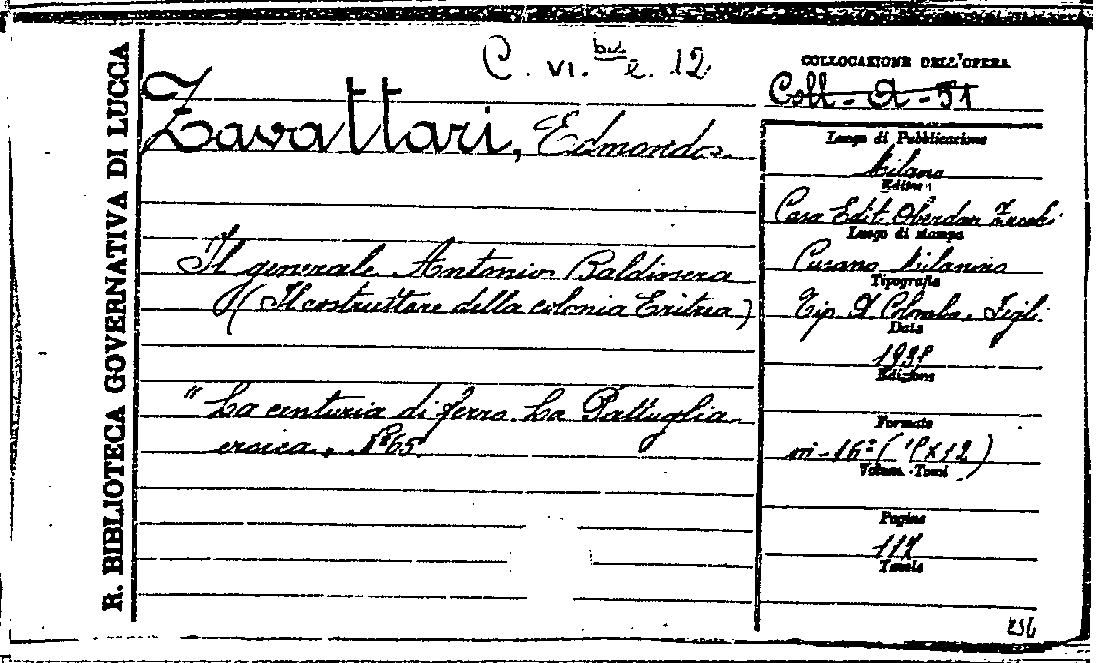 R. BIBLIOTECA GOVERNATIVA DI LUCCA
C. VI. bis e. 12
Zavattari, Edmondo
Il generale Antonio Baldissera
(Il costruttore della colonia Eritrea)
"La centuria di ferro. La Pattuglia
eroica, N° 65
COLLOCAZIONE DELL'OPERA
Coll - A - 51
Luogo di Pubblicazione
Milano
Editore
Casa Edit. Oberdan Zucchi
Luogo di stampa
Cusano Milanino
Tipografia
Tip. A Colombo, Figli
Data
Edizione
Formato
in-16° ( x12)
Volumi - Tomi
Pagine
117
Tavole